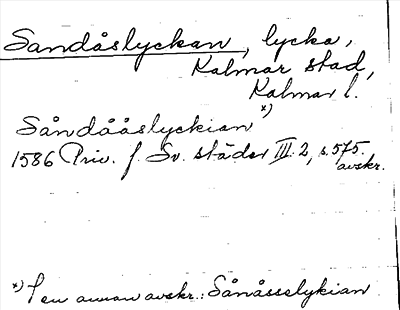 Sandåslyckan, lycka,
Kalmar stad,
Kalmar l.
Såndååslyckian *)
1586 Priv. f. Sv. städer III:2, s. 575.
avskr.
*) I en annan avskr.: Sånåsselykian